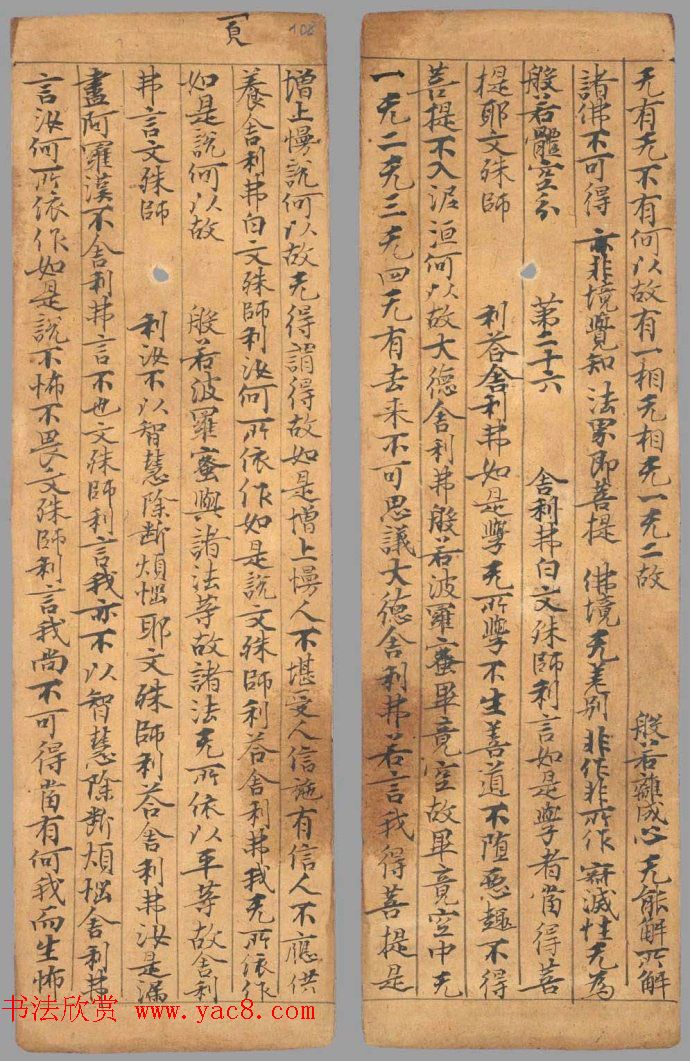 无有无不有何以故有一相无相无一无二故 般若離成心无能解所解
諸佛不可得 亦非境覺知 法界即菩提 佛境无差别 非作非所作 寂滅性无為
般若體空分 第二十六 舍利弗白文殊師利言如是學者當得菩
提耶文殊師 利荅舍利弗如是學无所學不生善道不堕惡趣不得
菩提不入泥洹何以故大德舍利弗般若波羅蜜畢竟空故畢竟空中无
一无二无三无四无有去来不可思議大德舍利弗若言我得菩提是
108
增上慢說何以故无得謂得故如是增上慢人不堪受人信施有信人不應供
養舍利弗白文殊師利汝何所依作如是說文殊師利荅舍利弗我无所依作
如是說何以故 般若波羅蜜與諸法等故諸法无所依以平等故舍利
弗言文殊師 利汝不以智慧除断煩惱耶文殊師利荅舍利弗汝是漏
盡阿羅漢不舍利弗言不也文殊師利言我亦不以智慧除断煩惱舍利弗
言汝何所依作如是說不怖不畏文殊師利言我尚不可得當有何我而生怖
书法欣赏 www.yac8.com